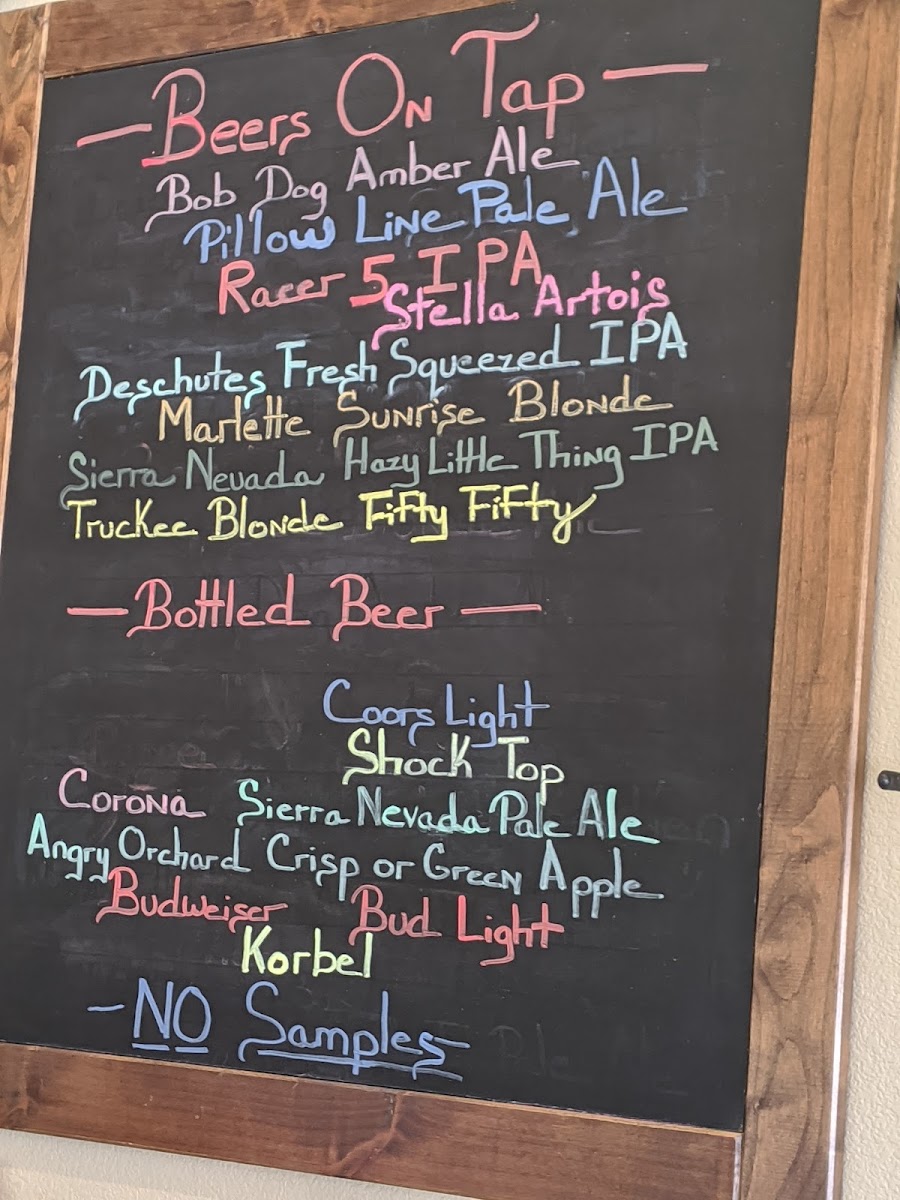 — Beers On Tap —
Bob Dog Amber Ale
Pillow Line Pale Ale
Racer 5 IPA
Stella Artois
Deschutes Fresh Squeezed IPA
Marlette Sunrise Blonde
Sierra Nevada Hazy Little Thing IPA
Truckee Blonde Fifty Fifty
— Bottled Beer —
Coors Light
Shock Top
Corona Sierra Nevada Pale Ale
Angry Orchard Crisp or Green Apple
Budweiser Bud Light
Korbel
- NO Samples -